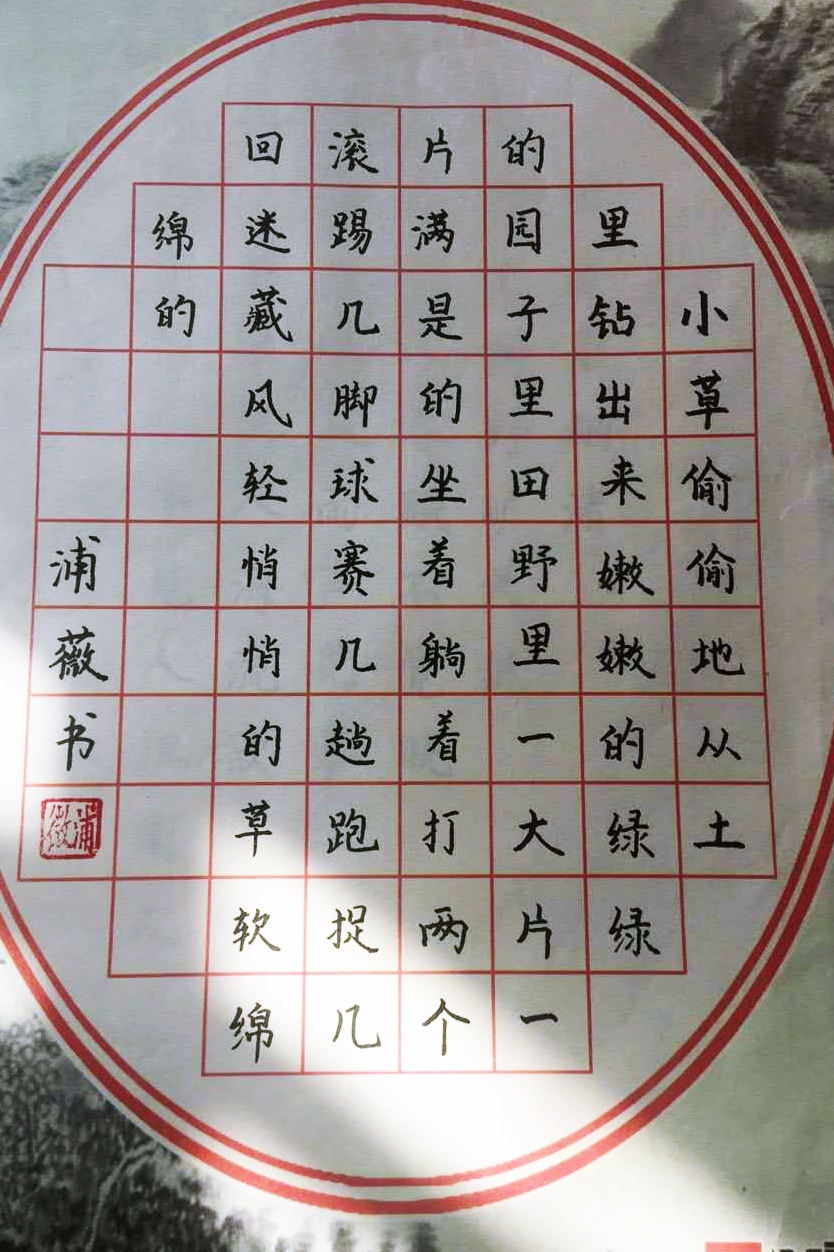 小草偷偷地从土
里钻出来嫩嫩的绿绿
的园子里田野里一大片一
片满是的坐着躺着打两个
滚踢几脚球赛几趟跑捉几
回迷藏风轻悄悄的草软绵
绵的
浦薇书
浦薇